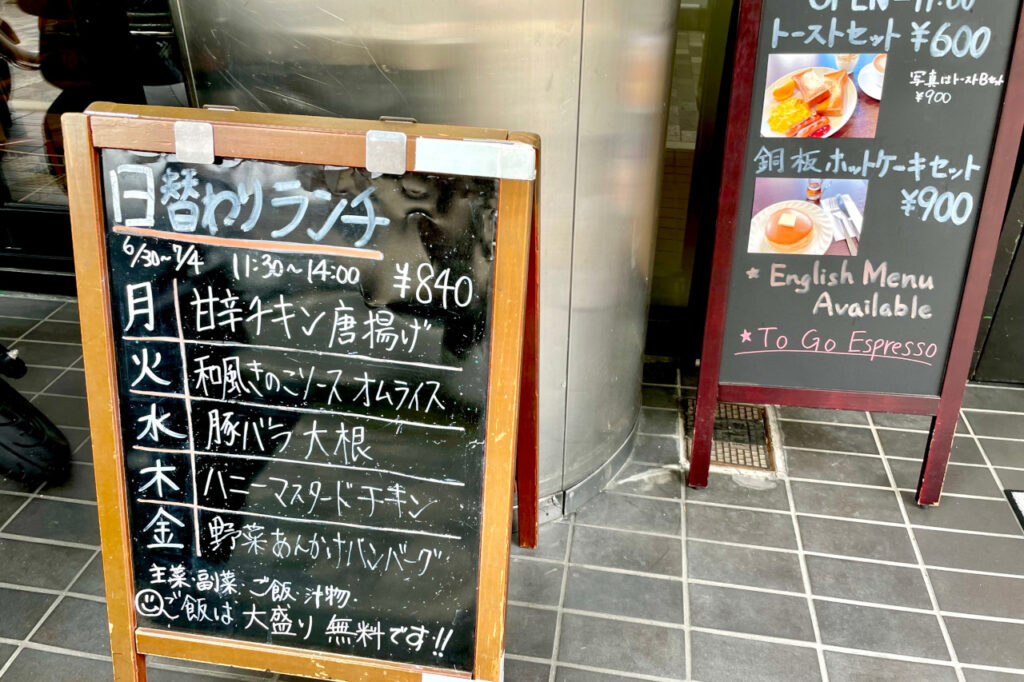 日替わりランチ
6/30~7/4 11:30~14:00 ¥840
月 甘辛チキン唐揚げ
火 和風きのこソースオムライス
水 豚バラ大根
木 ハニーマスタードチキン
金 野菜あんかけハンバーグ
主菜・副菜・ご飯・汁物・
ご飯は大盛り無料です!!
OPEN~11:00
トーストセット ¥600
写真はトーストBセット
¥900
銅板ホットケーキセット
¥900
★ English Menu
Available
★ To Go Espresso